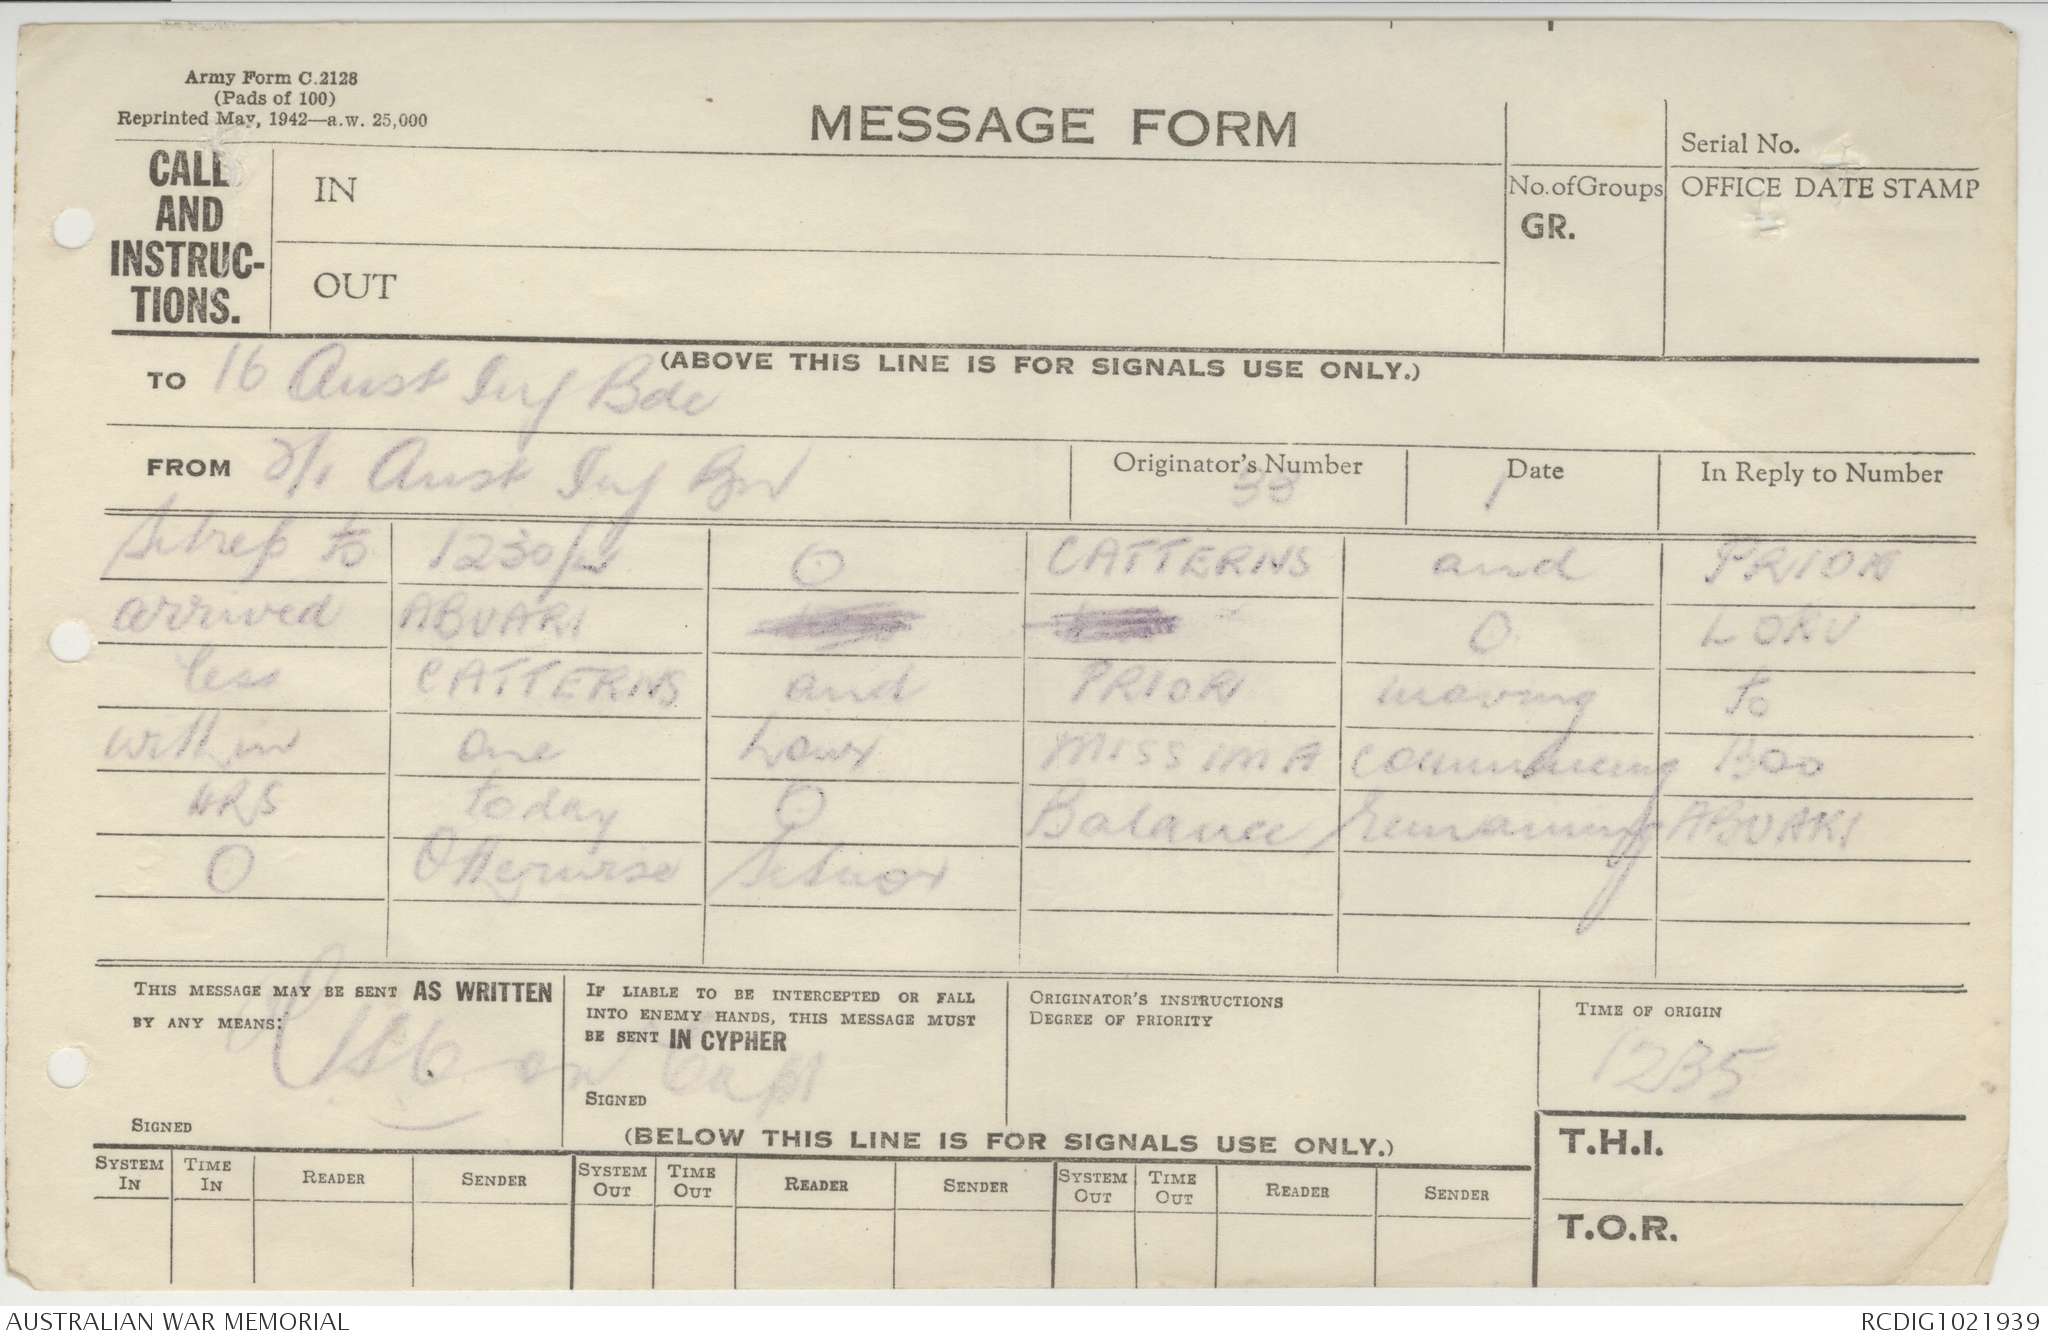 Army Form C.2128
(Pads of 100)
Reprinted May, 1942—a.w. 25,000
MESSAGE FORM
Serial No.
CALL AND INSTRUC-TIONS.
IN
OUT
No.ofGroups
GR.
OFFICE DATE STAMP
(ABOVE THIS LINE IS FOR SIGNALS USE ONLY.)
TO 16 Aust Inf Bde
FROM 2/1 Aust Inf Bn
Originator's Number 33
Date 1
In Reply to Number
Sitrep to 1230 O CATTERNS and PRIOR
arrived ABUARI O LOKU
less CATTERNS and PRIOR moving to
within one hour MISSIMA commencing 1300
HRS today O Balance remaining ABUAKI
O Otherwise
THIS MESSAGE MAY BE SENT AS WRITTEN BY ANY MEANS:
SIGNED
IF LIABLE TO BE INTERCEPTED OR FALL INTO ENEMY HANDS, THIS MESSAGE MUST BE SENT IN CYPHER
Capt
SIGNED
ORIGINATOR'S INSTRUCTIONS
DEGREE OF PRIORITY
TIME OF ORIGIN
1235
(BELOW THIS LINE IS FOR SIGNALS USE ONLY.)
T.H.I.
T.O.R.
SYSTEM IN TIME IN READER SENDER SYSTEM OUT TIME OUT READER SENDER SYSTEM OUT TIME OUT READER SENDER
AUSTRALIAN WAR MEMORIAL
RCDIG1021939